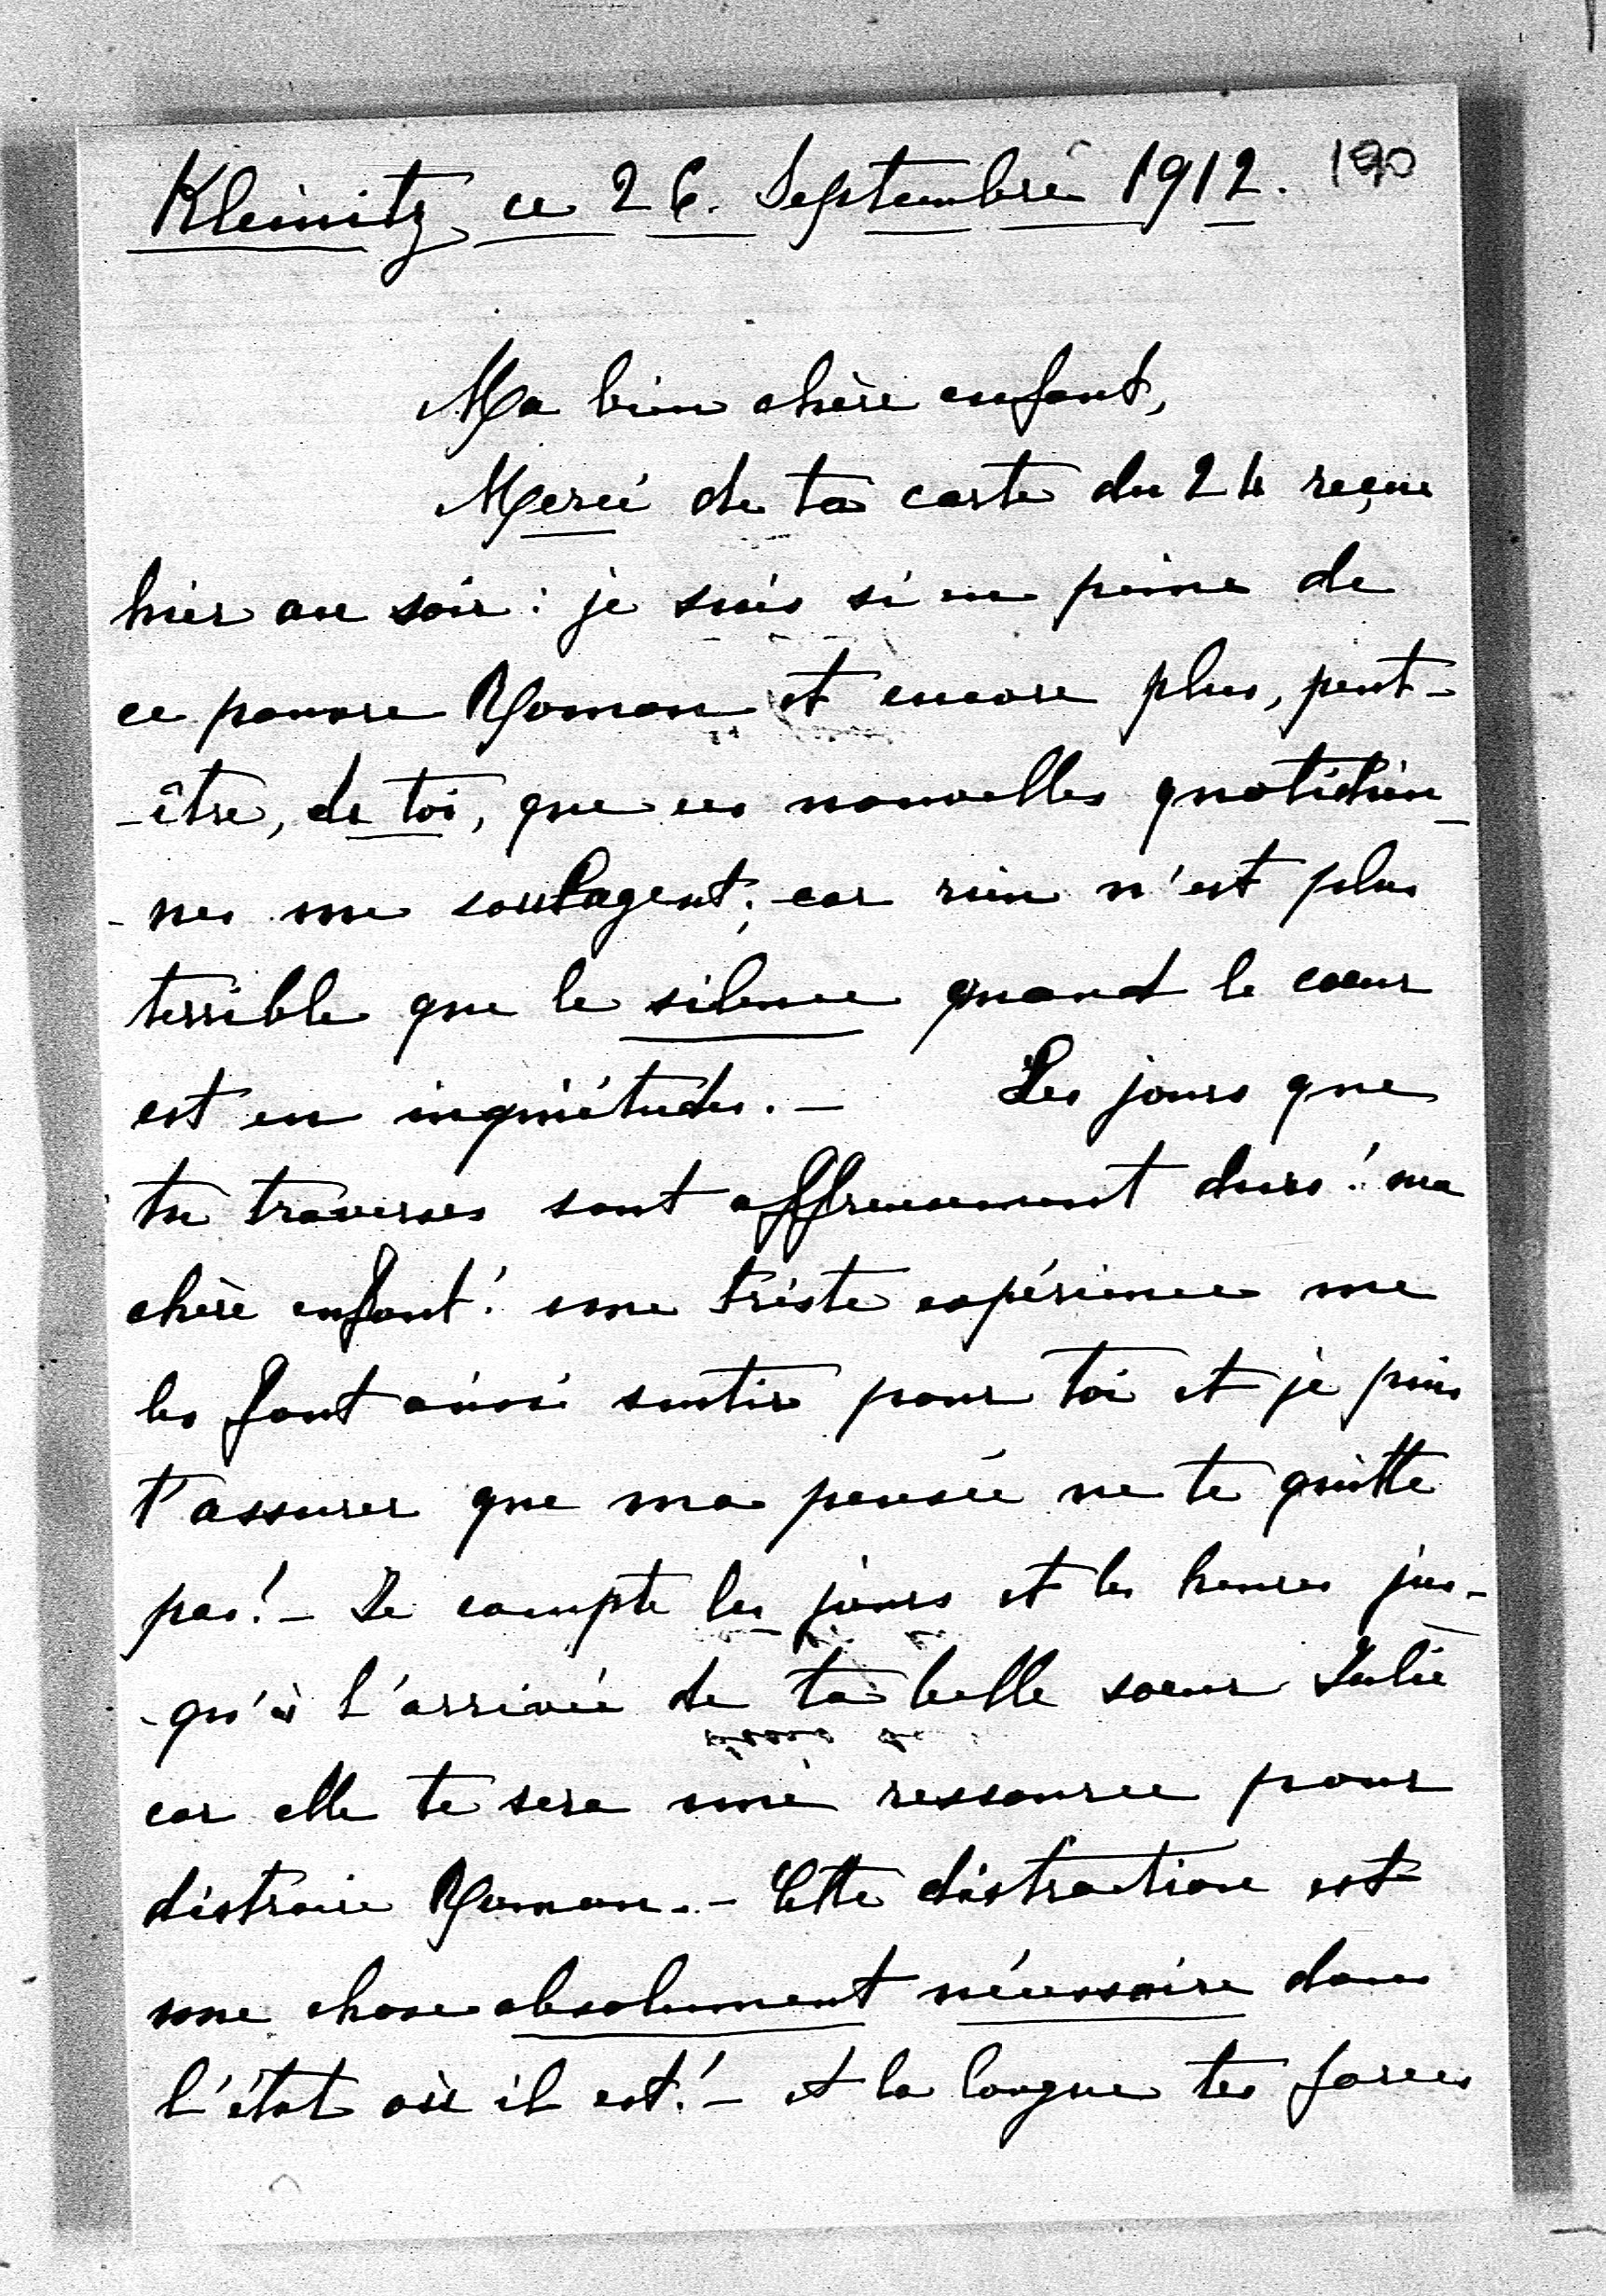 Kleinitz ce 26. Septembre 1912. 190
Ma bien chère enfant,
Merci de ta carte du 24 reçue
hier au soir : je suis si en peine de
ce pauvre Roman et encore plus, peut-
-être, de toi, que ces nouvelles quotidien-
-nes me soulagent; car rien n'est plus
terrible que le silence quand le coeur
est en inquiétudes. - Les jours que
tu traverses sont affreusement durs! ma
chère enfant! une triste expérience me
les font ainsi sentir pour toi et je puis
t'assurer que ma pensée ne te quitte
pas! - Je compte les jours et les heures jus-
-qu'à l'arrivée de ta belle soeur Julie
car elle te sera une ressource pour
distraire Roman. - Cette distraction est
une chose absolument nécessaire dans
l'état où il est! - A la longue tes forces